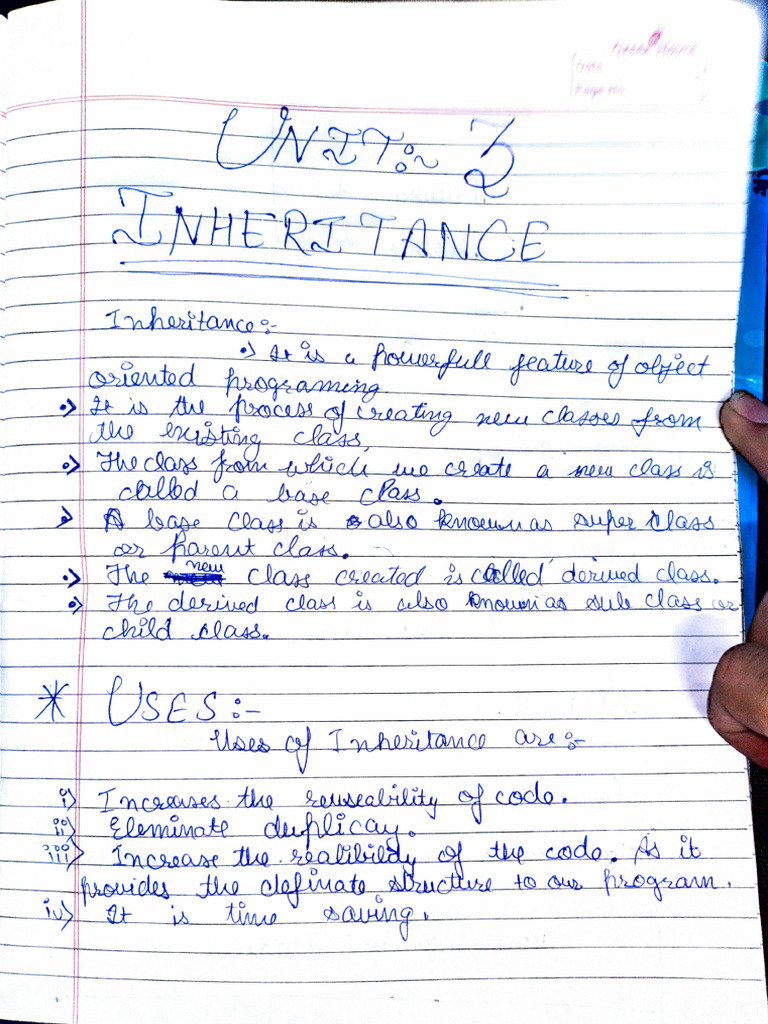 UNIT:~ 3
INHERITANCE
Inheritance:-
•> It is a powerfull feature of object
oriented programing.
•> It is the process of creating new classes from
the existing class.
•> The class from which we create a new class is
called a base class.
•> A base class is also known as super class
or parent class.
•> The new class created is called derived class.
•> The derived class is also known as sub class or
child class.
* USES:-
Uses of Inheritance are:-
i> Increases the reuseability of code.
ii> Eleminate duplicay.
iii> Increase the realibility of the code. As it
provides the definate structure to our program.
iv> It is time saving.